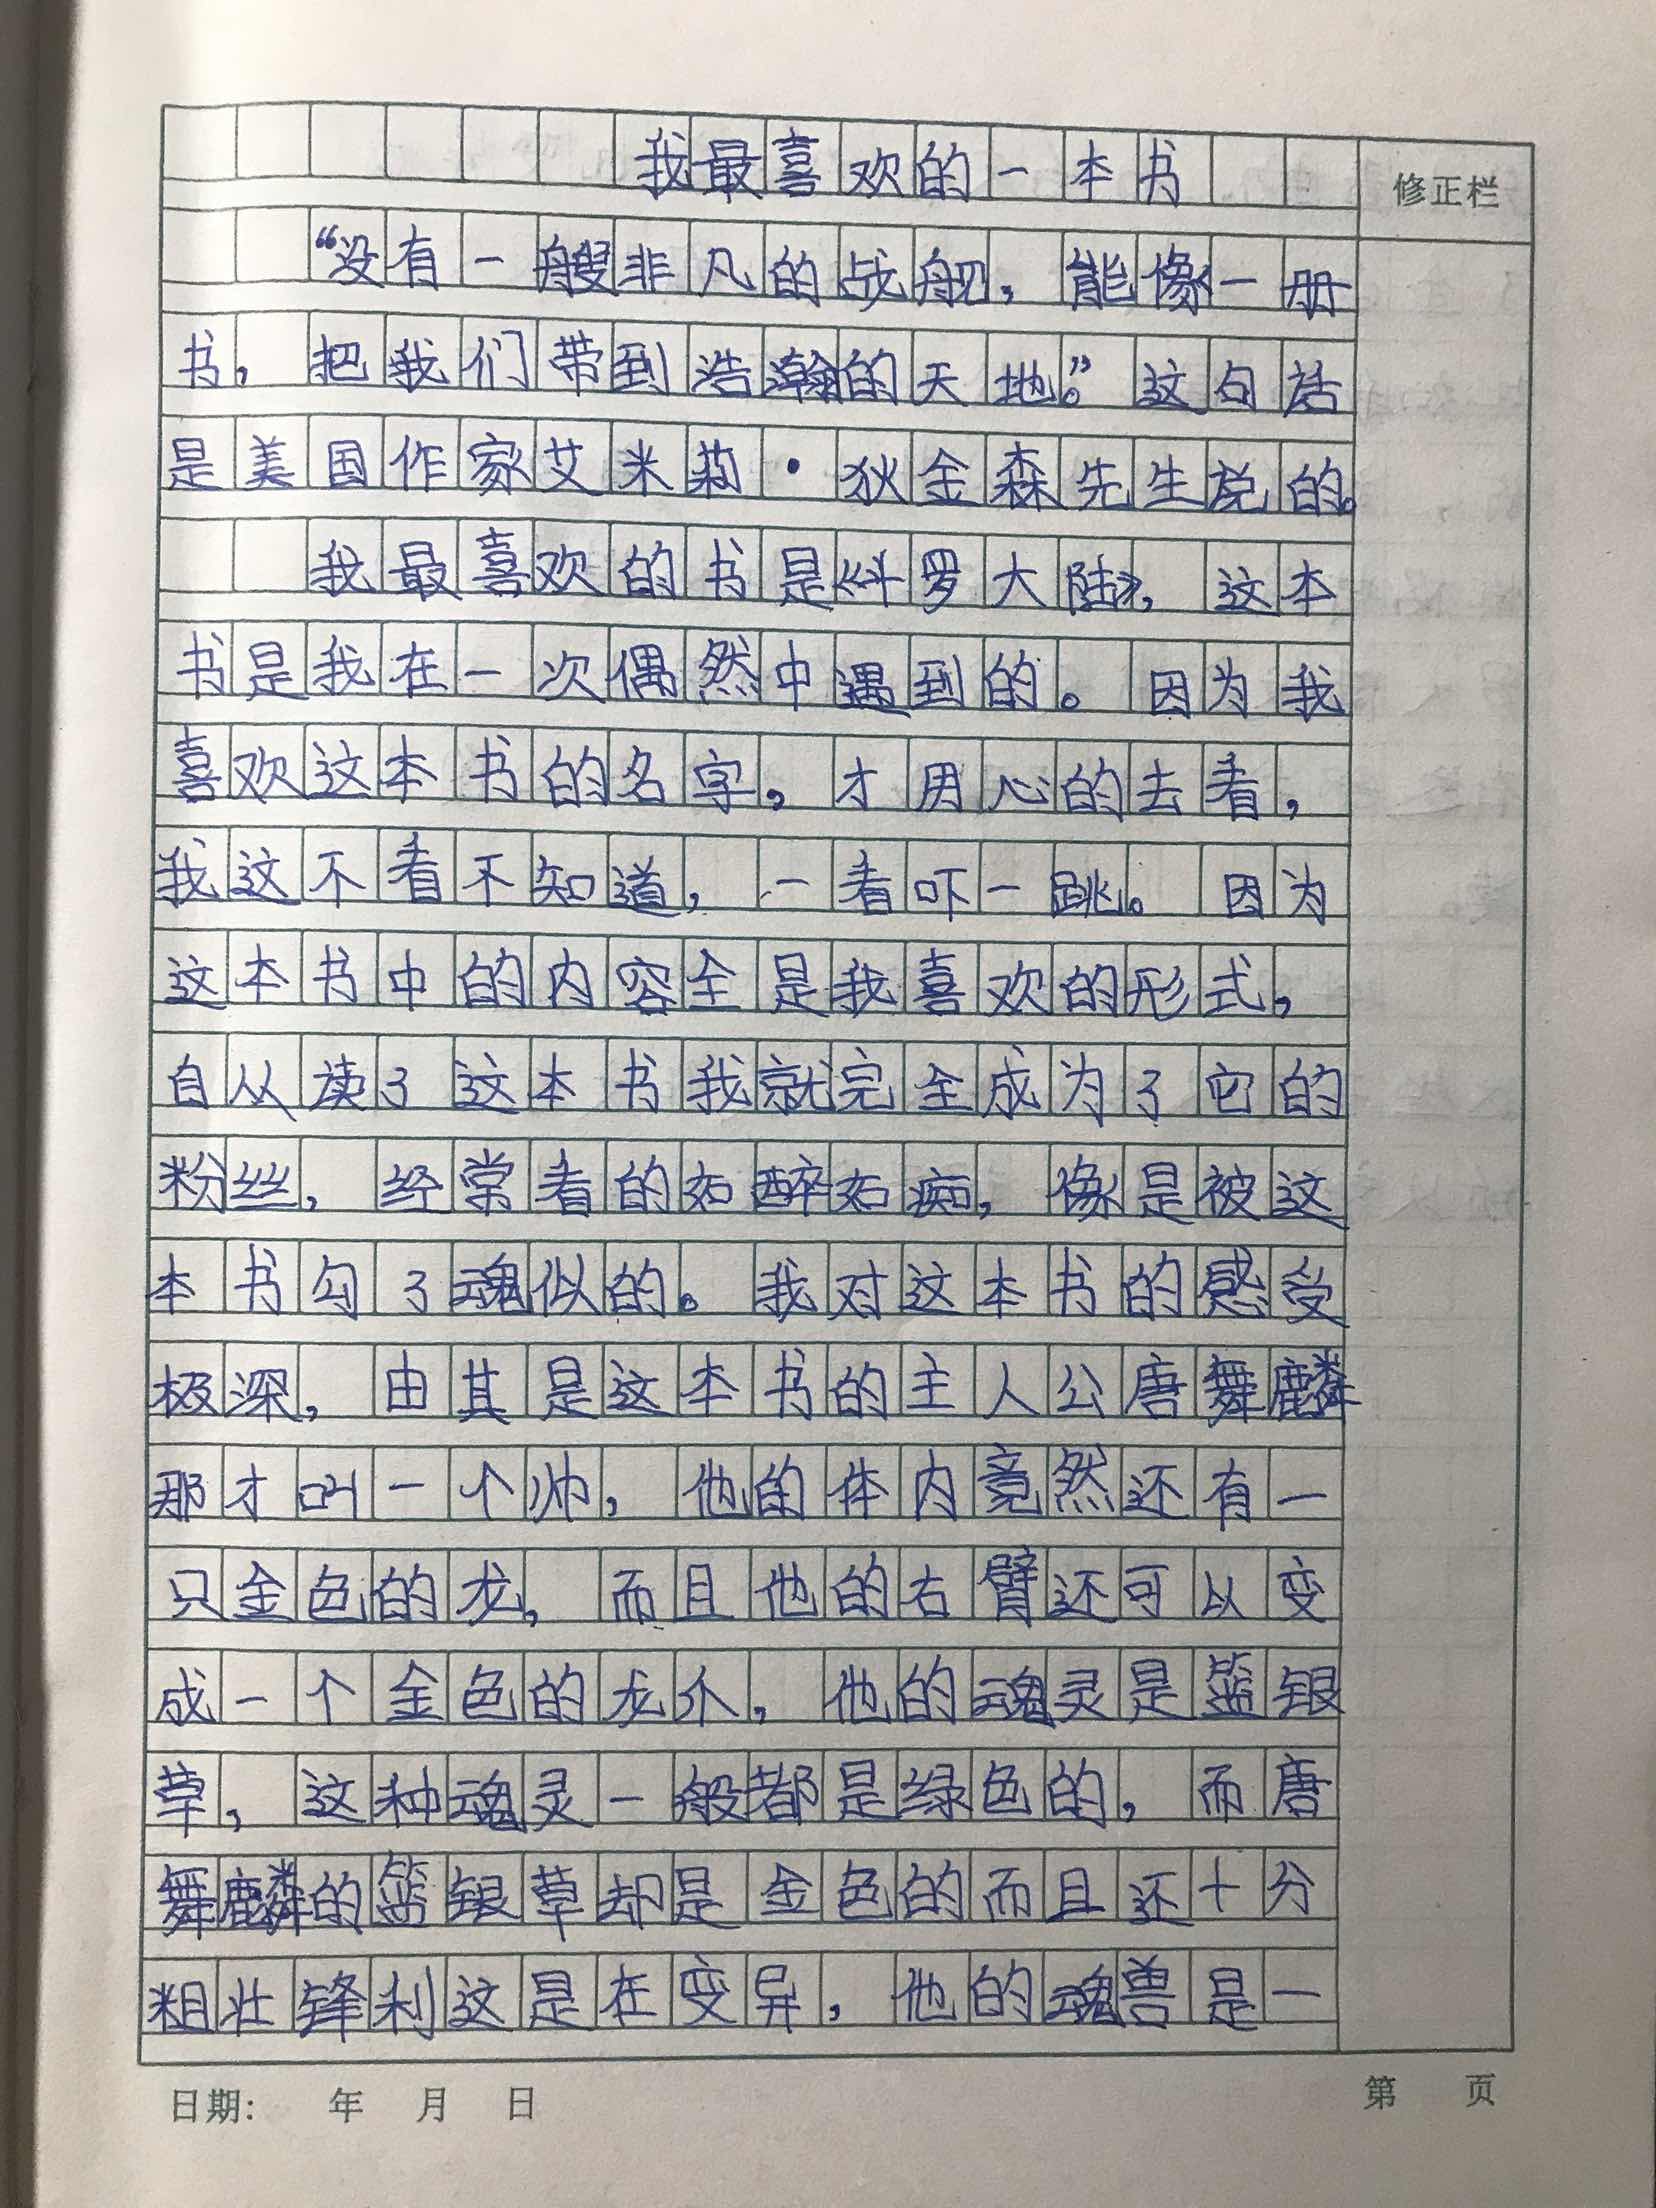 我最喜欢的一本书
修正栏
“没有一艘非凡的战舰，能像一册
书，把我们带到浩瀚的天地。”这句话
是美国作家艾米莉·狄金森先生说的。
我最喜欢的书是《斗罗大陆》，这本
书是我在一次偶然中遇到的。因为我
喜欢这本书的名字，才用心的去看，
我这不看不知道，一看吓一跳。因为
这本书中的内容全是我喜欢的形式，
自从读了这本书我就完全成为了它的
粉丝，经常看的如醉如痴，像是被这
本书勾了魂似的。我对这本书的感受
极深，由其是这本书的主人公唐舞麟
那才叫一个帅，他的体内竟然还有一
只金色的龙，而且他的右臂还可以变
成一个金色的龙爪，他的魂灵是篮银
草，这种魂灵一般都是绿色的，而唐
舞麟的篮银草却是金色的而且还十分
粗壮锋利这是在变异，他的魂兽是一
日期： 年 月 日
第 页